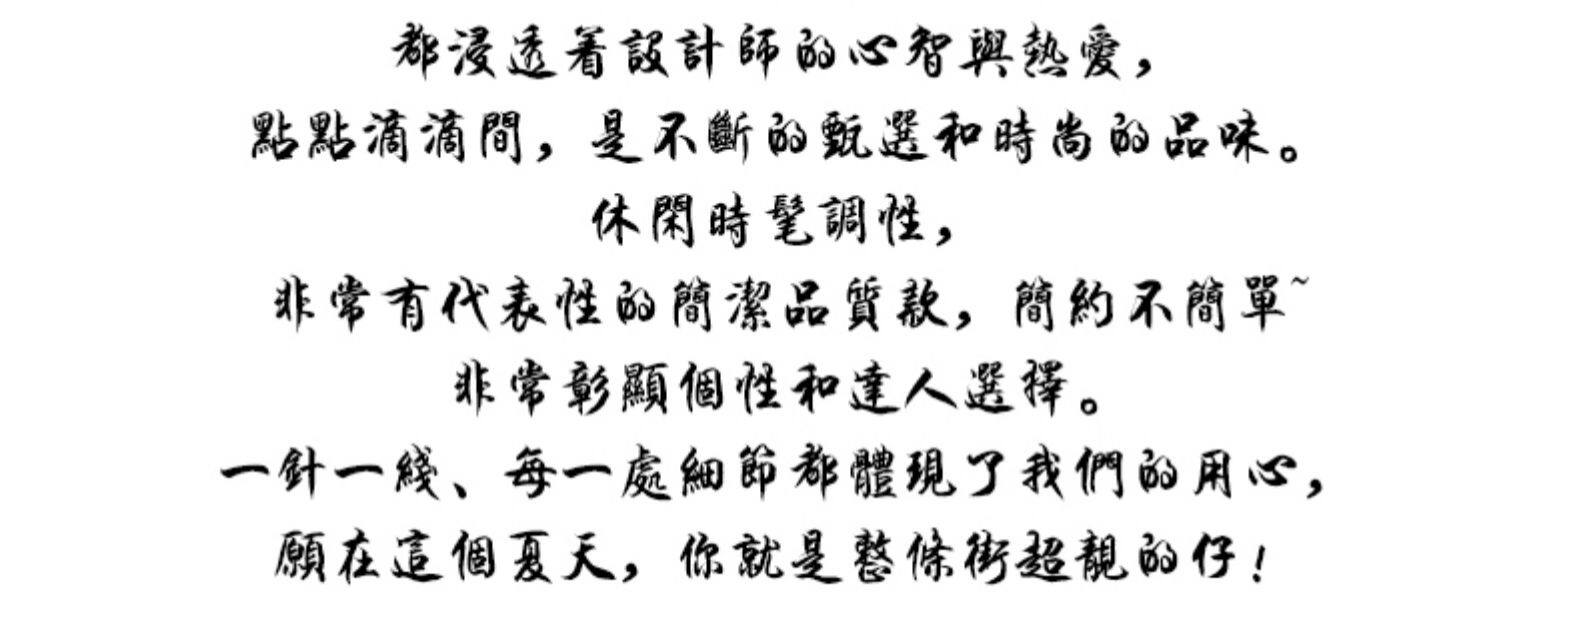 都浸透着設計師的心智與熱愛，
點點滴滴間，是不斷的甄選和時尚的品味。
休閑時髦調性，
非常有代表性的簡潔品質款，簡約不簡單~
非常彰顯個性和達人選擇。
一針一綫、每一處細節都體現了我們的用心，
願在這個夏天，你就是整條街超靚的仔！